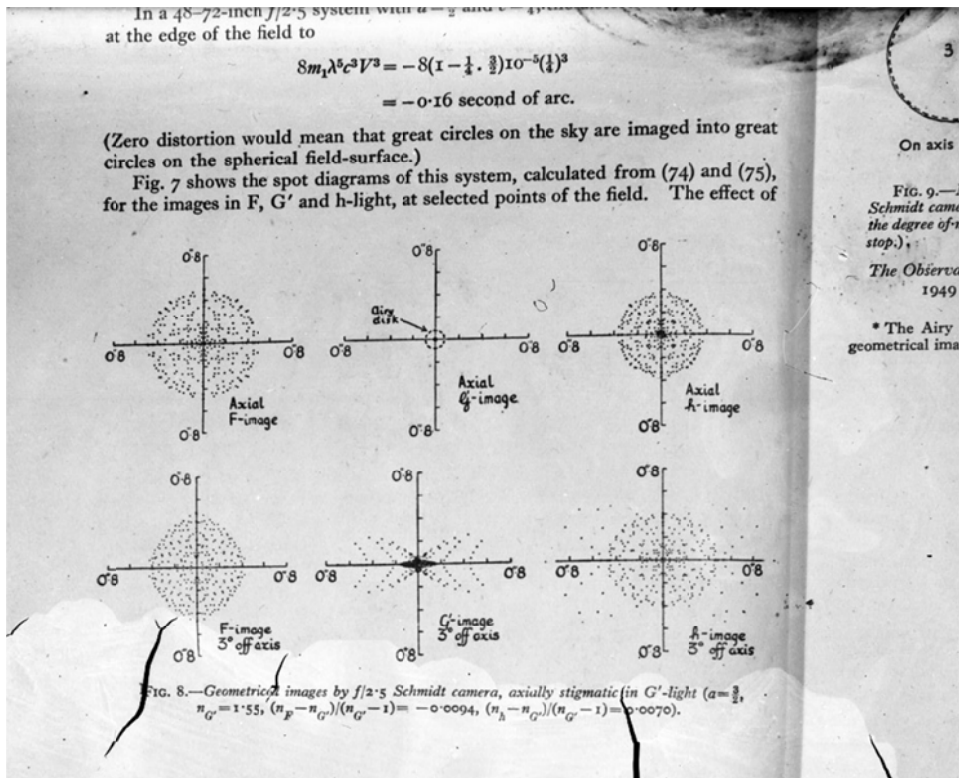 In a 48–72-inch f/2·5 system with
at the edge of the field to
8m₁λ⁵c³V³ = −8(1−¼ . ³⁄₂)10⁻⁵(¼)³
= −0·16 second of arc.
(Zero distortion would mean that great circles on the sky are imaged into great
circles on the spherical field-surface.)
Fig. 7 shows the spot diagrams of this system, calculated from (74) and (75),
for the images in F, G′ and h-light, at selected points of the field. The effect of
0″8 0″8 0″8
Airy
disk
0″8 0″8 0″8 0″8 0″8 0″8
Axial
F-image
Axial
G′-image
Axial
h-image
0″8 0″8 0″8
0″8 0″8 0″8
0″8 0″8 0″8 0″8 0″8 0″8
F-image
3° off axis
G′-image
3° off axis
h-image
3° off axis
0″8 0″8 0″8
FIG. 8.—Geometrical images by f/2·5 Schmidt camera, axially stigmatic in G′-light (a=³⁄₂,
n_G′=1·55, (n_F−n_G′)/(n_G′−1)= −0·0094, (n_h−n_G′)/(n_G′−1)=0·0070).
3
On axis
FIG. 9.—
Schmidt came
the degree of
stop.).
The Observa
1949
* The Airy
geometrical ima